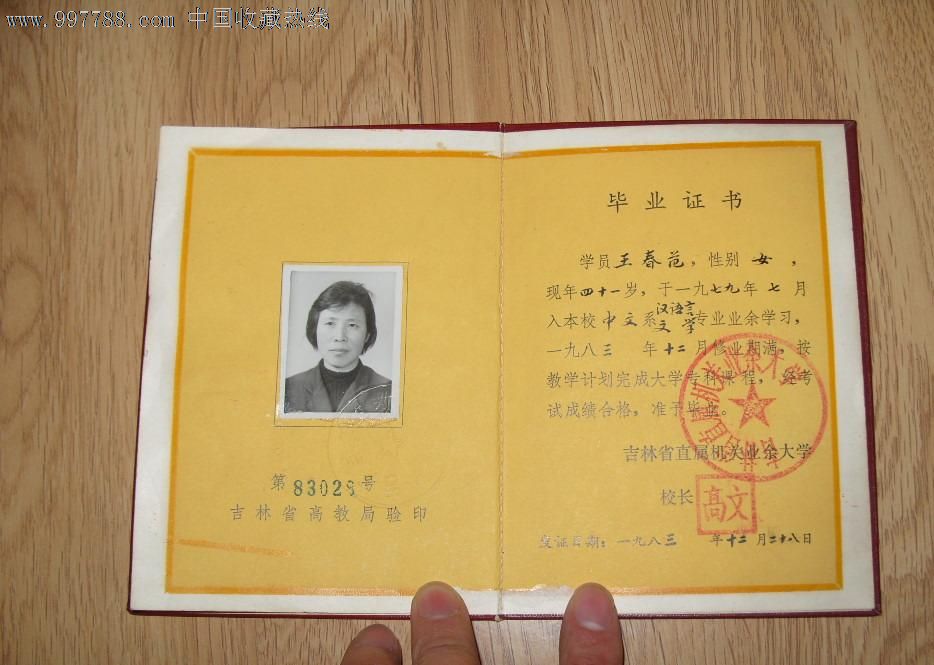 www.997788.com 中国收藏热线
第83029号
吉林省高教局验印
毕业证书
学员王春范，性别 女，
现年四十一岁，于一九七九年 七 月
入本校 中文系汉语言文学专业业余学习，
一九八三 年十二月修业期满，按
教学计划完成大学专科课程，经考
试成绩合格，准予毕业。
吉林省直属机关业余大学
校长 高文
发证日期：一九八三 年十二月二十八日
吉林省直属机关业余大学